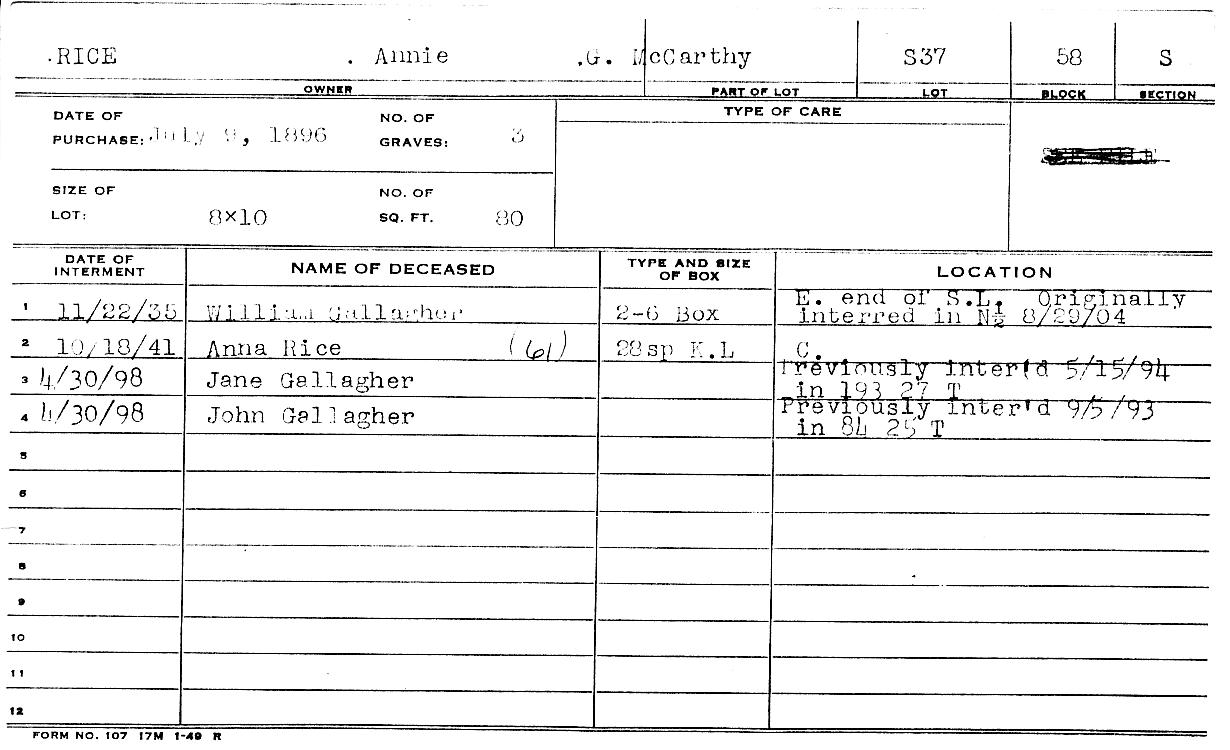 .RICE . Annie .G. McCarthy S37 58 S
OWNER PART OF LOT LOT BLOCK SECTION
DATE OF PURCHASE: July 9, 1896
NO. OF GRAVES: 3
TYPE OF CARE
SIZE OF LOT: 8x10
NO. OF SQ. FT. 80
DATE OF INTERMENT NAME OF DECEASED TYPE AND SIZE OF BOX LOCATION
1 11/22/35 William Gallagher 2-6 Box E. end of S.L, Originally
interred in N½ 8/29/04
2 10/18/41 Anna Rice (61) 28sp K.L C.
3 4/30/98 Jane Gallagher Previously inter'd 5/15/94
in 193 27 T
4 4/30/98 John Gallagher Previously inter'd 9/5/93
in 84 25 T
5
6
7
8
9
10
11
12
FORM NO. 107 17M 1-49 R